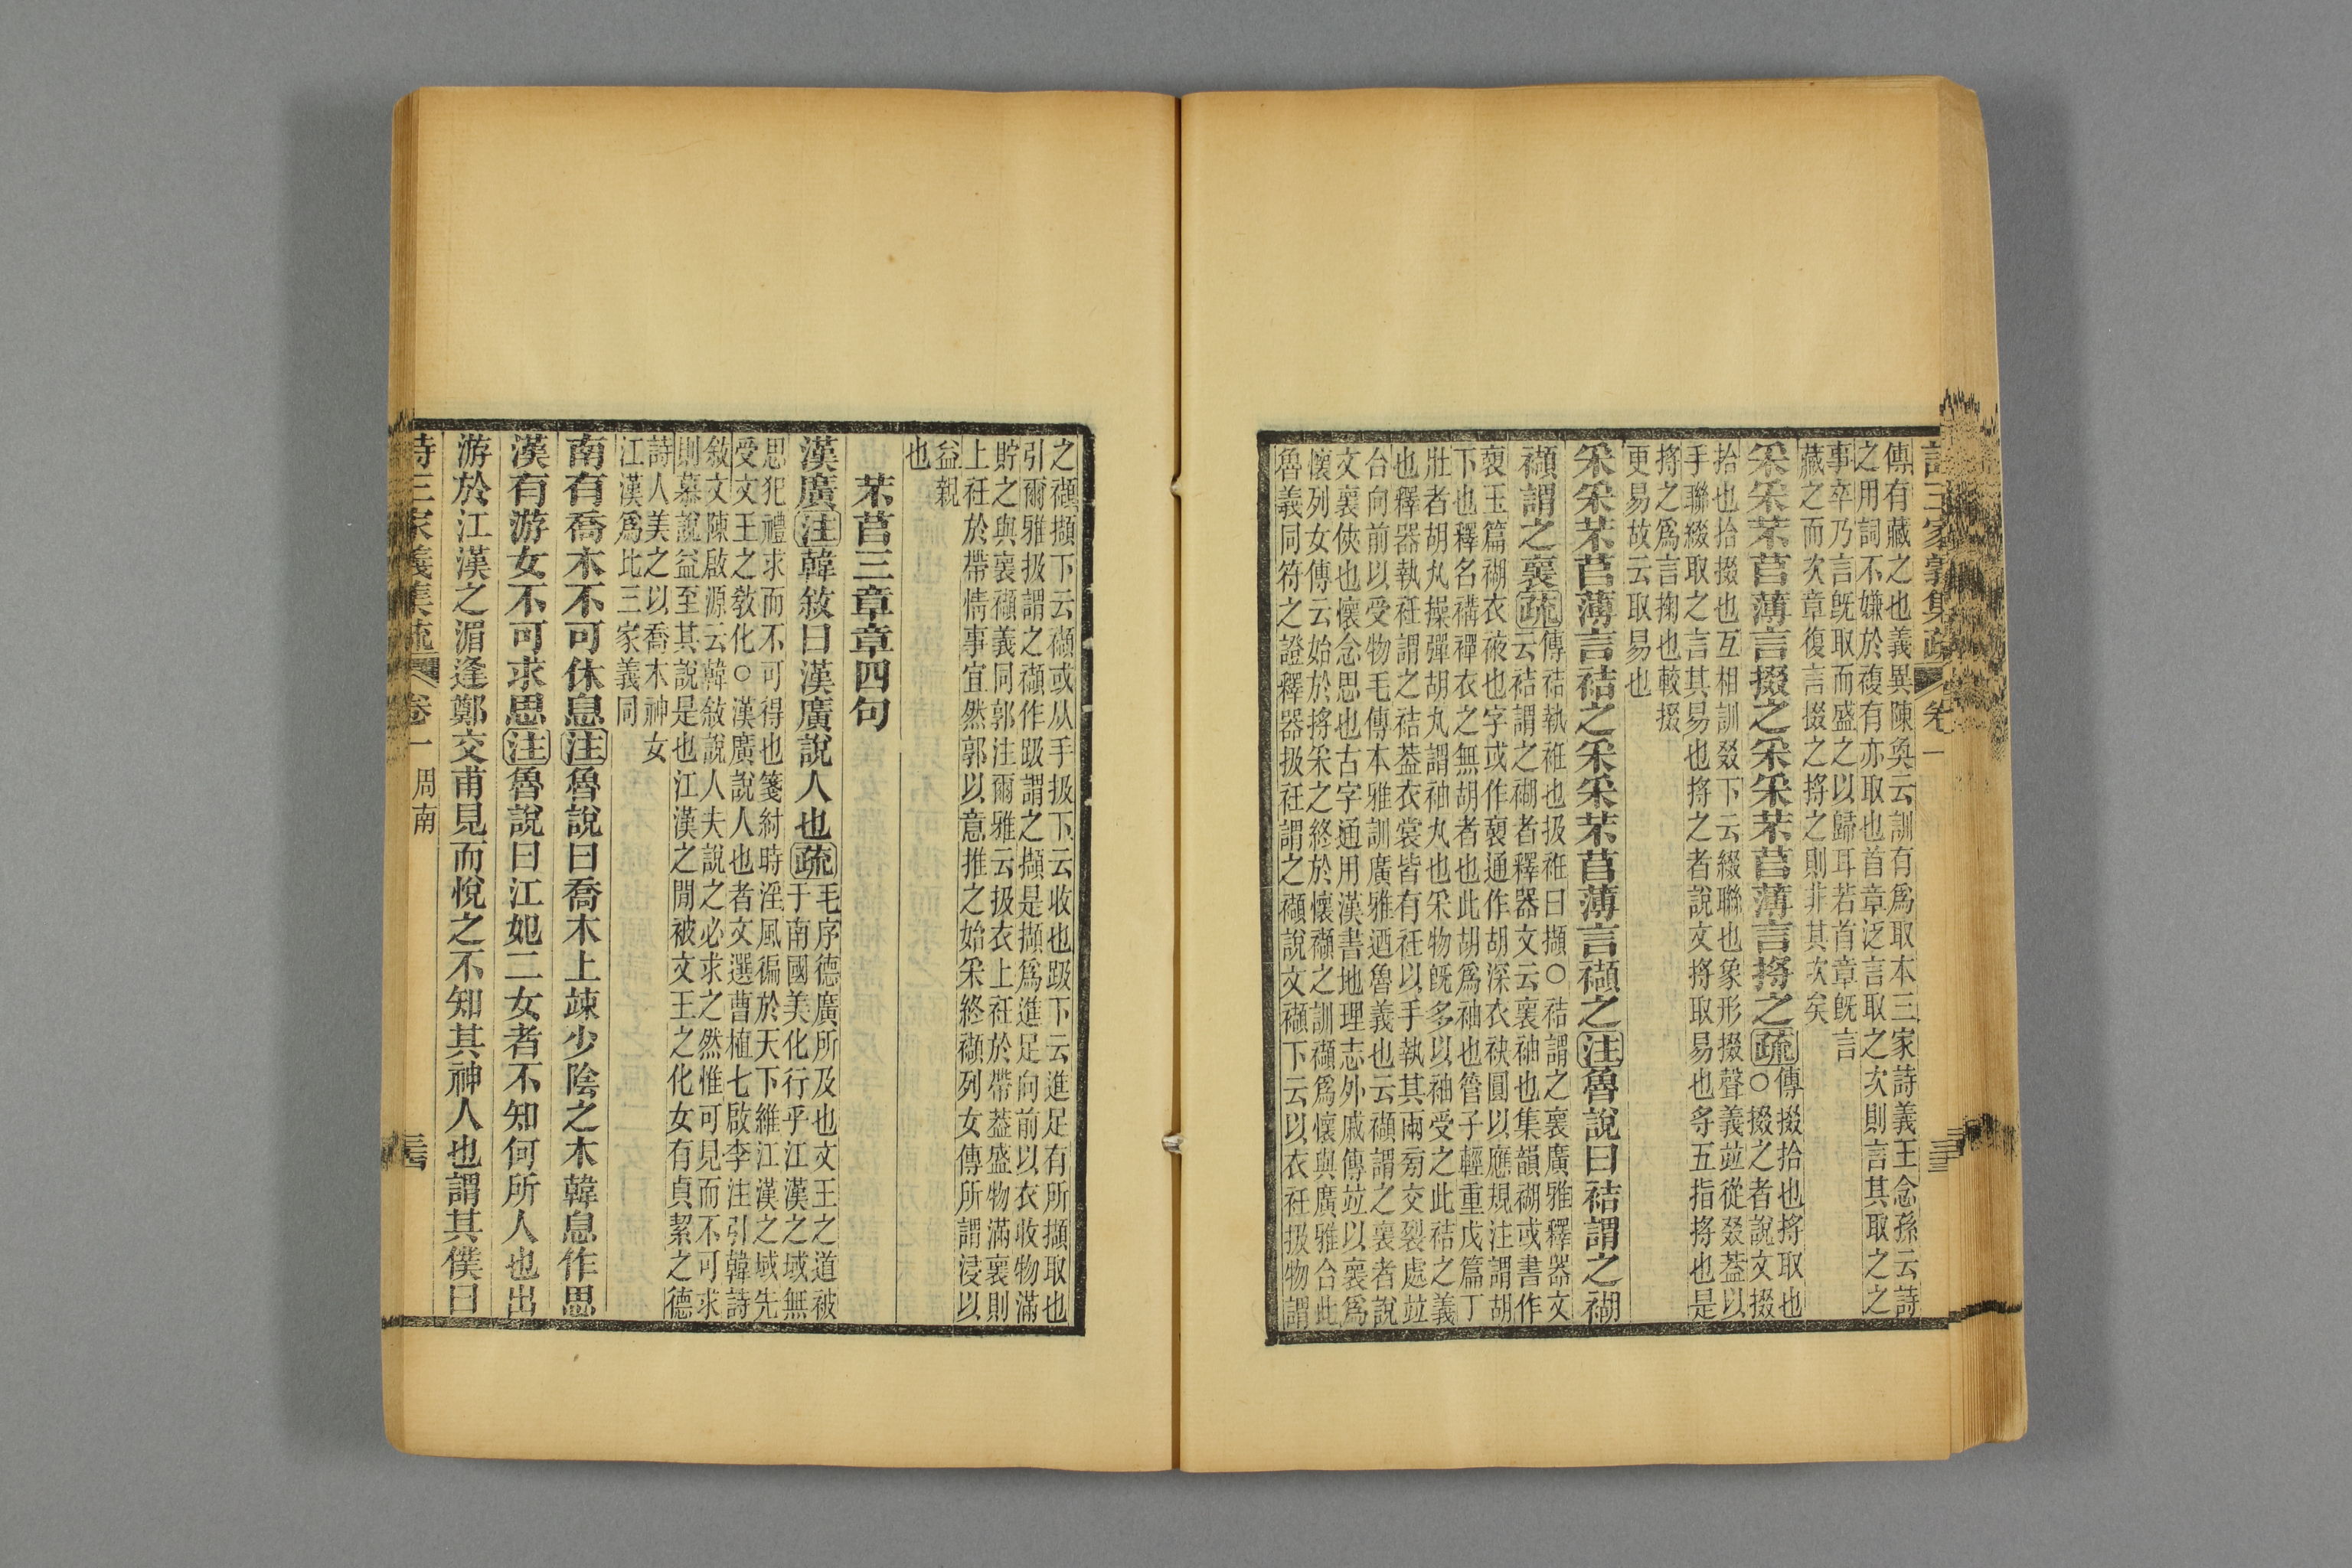 詩三家義集疏 卷一
傳有藏之也義異陳奐云訓有爲取本三家詩義王念孫云詩
之用詞不嫌於複有亦取也首章泛言取之次則言其取之之
事卒乃言旣取而盛之以歸耳若首章旣言
藏之而次章復言掇之捋之則非其次矣
采采芣苢薄言掇之采采芣苢薄言捋之疏
傳掇拾也捋取也
○掇之者說文掇
拾也拾掇也互相訓叕下云綴聯也象形掇聲義竝從叕葢以
手聯綴取之言其易也捋之者說文捋取易也寽五指捋也是
捋之爲言掬也較掇
更易故云取易也
采采芣苢薄言袺之采采芣苢薄言襭之注魯說曰袺謂之䘫
襭謂之褱疏
傳袺執衽也扱衽曰襭○袺謂之褱廣雅釋器文
云袺謂之䘫者釋器文云褱袖也集韻䘫或書作
褏玉篇䘫衣裓也字或作褏通作胡深衣袂圓以應規注謂胡
下也釋名褠襌衣之無胡者也此胡爲袖也管子輕重戊篇丁
壯者胡丸操彈胡丸謂袖丸也采物旣多以袖受之此袺之義
也釋器執衽謂之袺葢衣裳皆有衽以手執其兩旁交裂處竝
台向前以受物毛傳本雅訓廣雅迺魯義也云襭謂之褱者說
文褱俠也懷念思也古字通用漢書地理志外戚傳竝以褱爲
懷列女傳云始於捋采之終於懷襭之訓襭爲懷與廣雅合此
魯義同符之證釋器扱衽謂之襭說文襭下云以衣衽扱物謂
之襭擷下云襭或从手扱下云收也趿下云進足有所擷取也
引爾雅扱謂之襭作趿謂之擷是擷爲進足向前以衣收物滿
貯之與褱襭義同郭注爾雅云扱衣上衽於帶葢盛物滿褱則
上衽於帶情事宜然郭以意推之始采終襭列女傳所謂浸以
益親
也
芣苢三章章四句
漢廣注韓敘曰漢廣說人也疏
毛序德廣所及也文王之道被
于南國美化行乎江漢之域無
思犯禮求而不可得也箋紂時淫風徧於天下維江漢之域先
受文王之敎化○漢廣說人也者文選曹植七啟李注引韓詩
敘文陳啟源云韓敘說人夫說之必求之然惟可見而不可求
則慕說益至其說是也江漢之閒被文王之化女有貞絜之德
詩人美之以喬木神女
江漢爲比三家義同
南有喬木不可休息注魯說曰喬木上竦少陰之木韓息作思
漢有游女不可求思注魯說曰江妃二女者不知何所人也出
游於江漢之湄逢鄭交甫見而悅之不知其神人也謂其僕曰
詩三家義集疏 卷一 周南